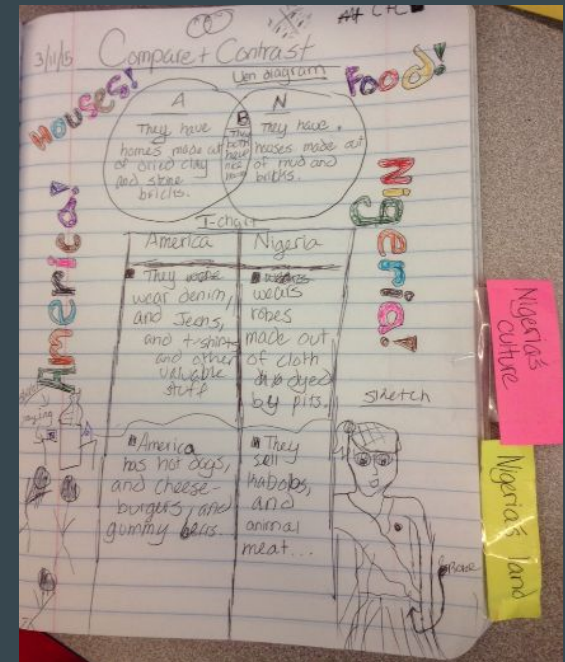 3/11/15 Compare + Contrast
Ven diagram
Houses!
Food!
America!
Nigeria!
A
They have
homes made out
of dried clay
and stone
bricks.
B
They
both
have
nice
N
They have
houses made out
of mud and
bricks.
T-chart
America
They
wear denim,
and Jeans,
and t-shirts
and other
valuable
stuff
Nigeria
wears
robes
made out
of cloth
dyed
by pits.
America
has hot dogs,
and cheese-
burgers, and
gummy bears.
They
sell
kabobs,
and
animal
meat...
sketch
Nigeria's
culture
Nigeria's land